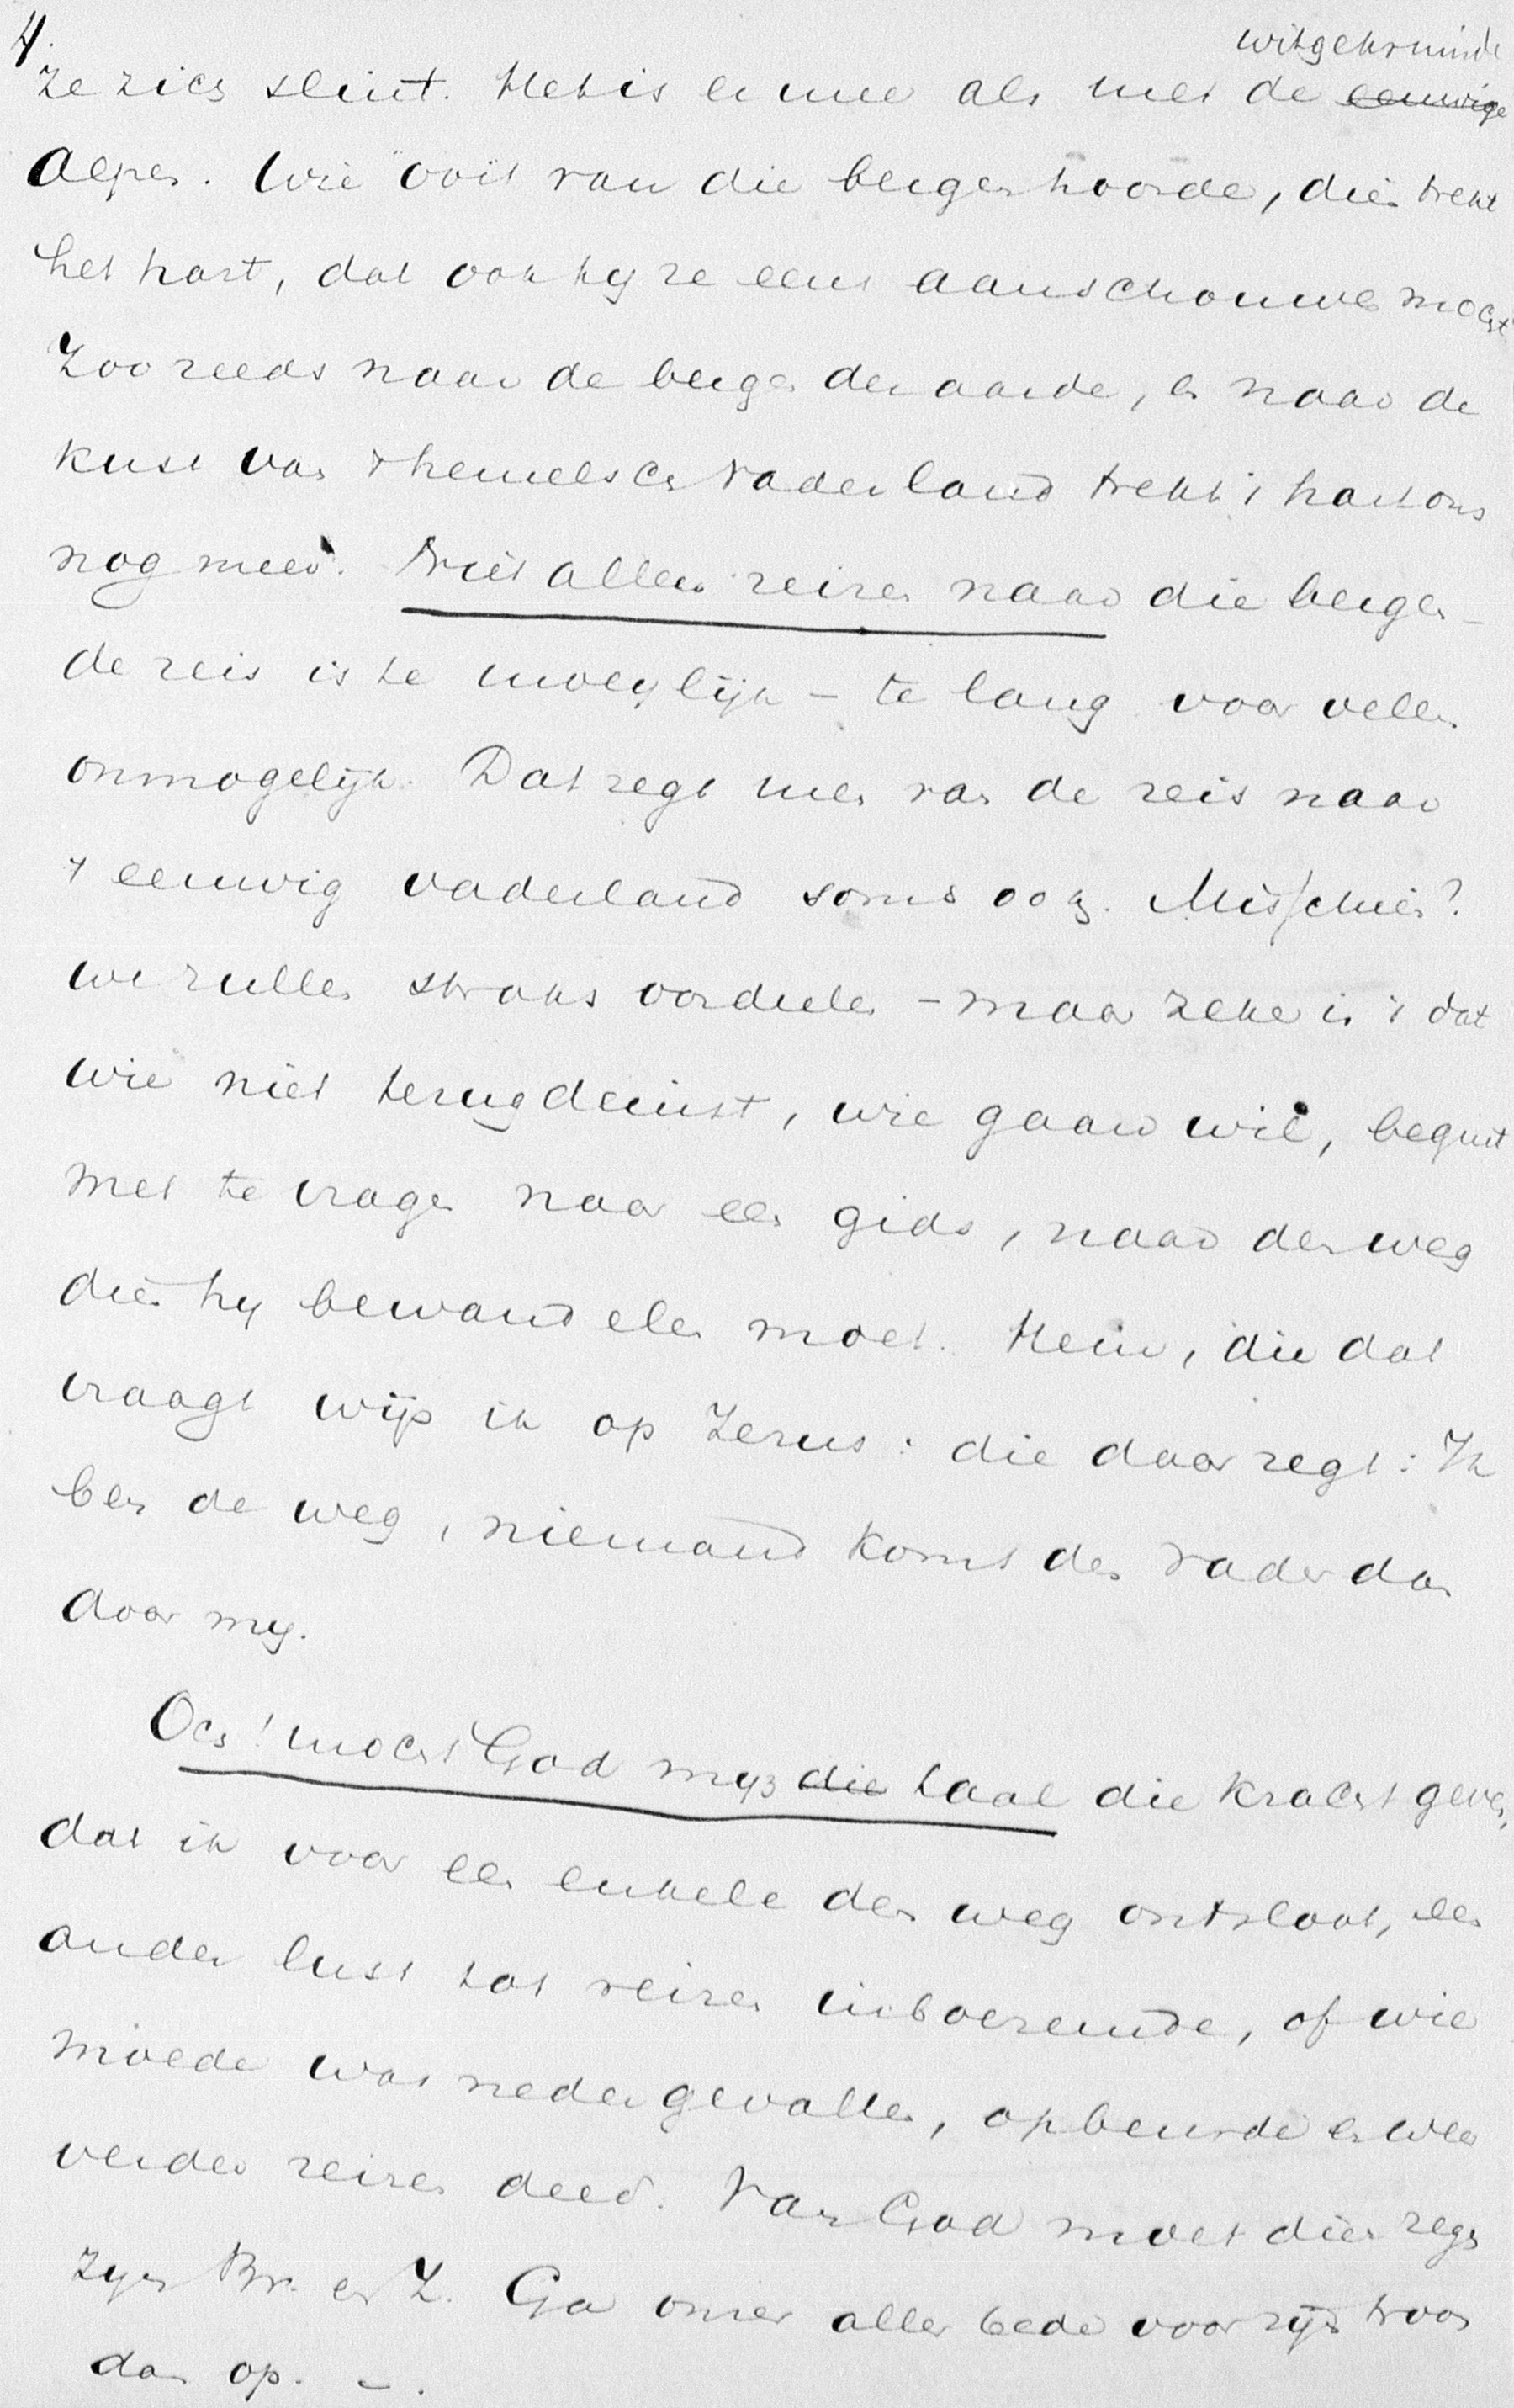 4.
witgekruinde
ze zich sluit. Het is ermee als met de eeuwige
Alpen. Wie ooit van die bergen hoorde, dien trekt
het hart, dat ook hy ze eens aanschouwen mocht
Zoo reeds naar de bergen der aarde, en naar de
kust van 't hemelsch Vaderland trekt 't hart ons
nog meer. Niet allen reizen naar die bergen –
de reis is te moeylijk – te lang voor velen
onmogelijk. Dat zegt men van de reis naar
't eeuwig vaderland soms ook. Misschien?
we zullen straks oordeelen – maar zeker is 't dat
wie niet terugdeinst, wie gaan wil, begint
met te vragen naar een gids, naar den weg
dien hy bewandelen moet. Hem, die dat
vraagt wijs ik op Jezus: die daar zegt: Ik
ben de weg, niemand komt den Vader dan
door my.
Och! mocht God my die taal die kracht geven,
dat ik voor een enkele den weg ontsloot, een
ander lust tot reizen inboezemde, of wie
moede was nedergevallen, opbeurde en weer
verder reizen deed. Van God moet dien zegen
zyn Br. en Z. Ga onzer aller bede voor zijn troon
dan op. –.